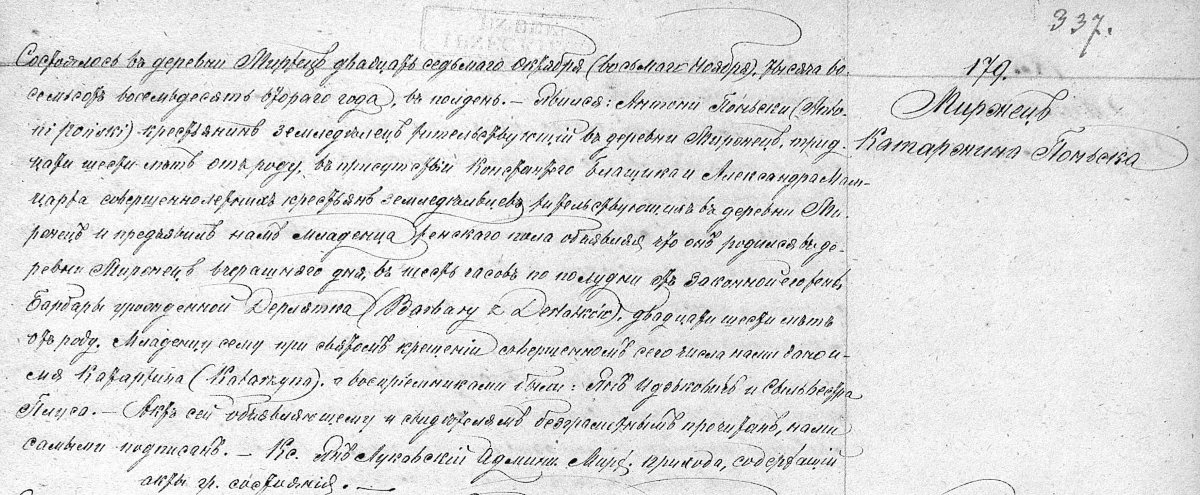 337.
179.
Миржецъ
Катаржина Поньска
Состоялось въ деревни Миржецъ двадцать седьмаго Октября (восьмаго Ноября), тысяча во-
семьсотъ восемьдесятъ втораго года, въ полдень. — Явился: Антони Поньски (Anto-
ni Poński) крестьянинъ земледѣлецъ жительствующій въ деревни Миржецъ, трид-
цати шести лѣтъ отъ роду, въ присутствіи Константого Блащика и Александра Мат-
царта совершеннолетнихъ крестьянъ земледѣльцевъ жительствующихъ въ деревни Ми-
ржецъ и предъявилъ намъ младенца женскаго пола объявляя что онъ родился въ де-
ревни Миржецъ вчерашняго дня, въ шесть часовъ по полудни отъ законной его жены
Барбары урожденной (Barbary z), двадцати шести лѣтъ
отъ роду. Младенцу сему при святомъ крещеніи совершенномъ сего числа нами дано и-
мя Катаржина (Katarzyna), а воспріемниками были: Янъ Идзьковскъ и Сильвестра
Плуса. — Актъ сей объявляющему и свидѣтелямъ безграмотнымъ прочитанъ, нами
самыми подписанъ. — Кс. Янъ Луковскій Админ. Мирж. прихода, содержащій
акты гр. состоянія. —